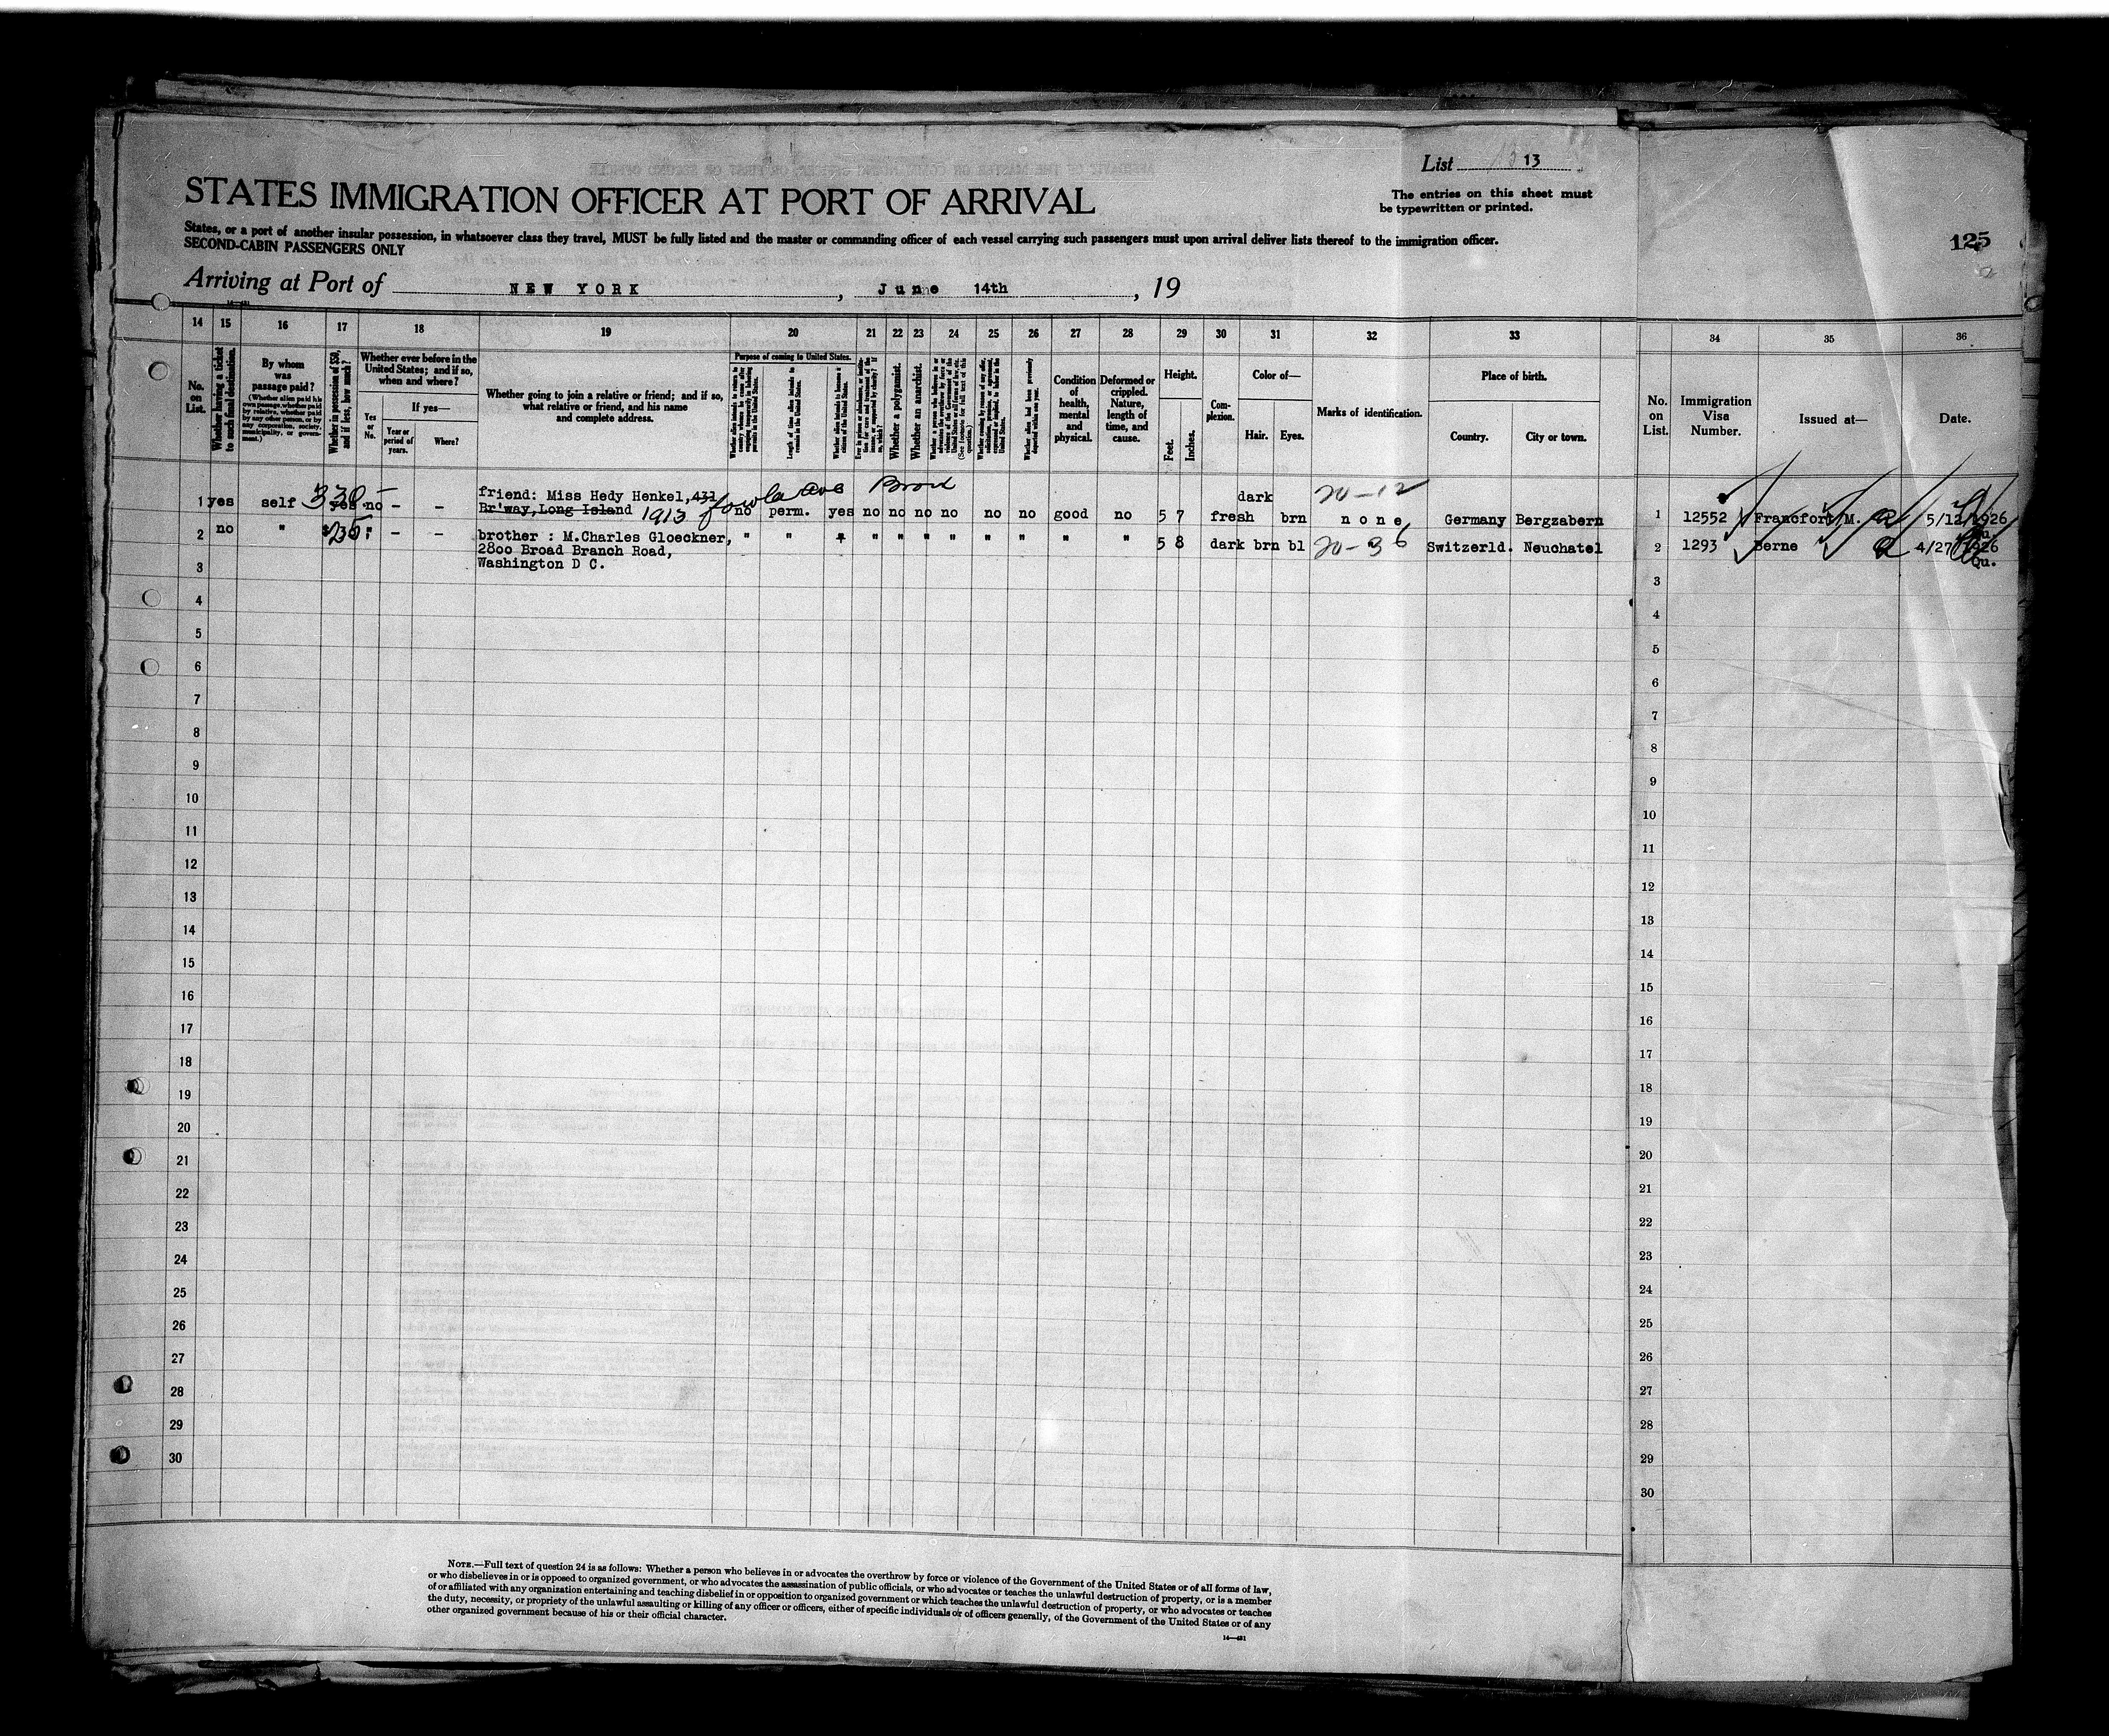 List 13
STATES IMMIGRATION OFFICER AT PORT OF ARRIVAL
The entries on this sheet must
be typewritten or printed.
States, or a port of another insular possession, in whatsoever class they travel, MUST be fully listed and the master or commanding officer of each vessel carrying such passengers must upon arrival deliver lists thereof to the immigration officer.
SECOND-CABIN PASSENGERS ONLY
125
Arriving at Port of NEW YORK, June 14th, 19
14 15 16 17 18 19 20 21 22 23 24 25 26 27 28 29 30 31 32 33 34 35 36
No. on List.
Whether having a ticket to such final destination.
By whom was passage paid?
(Whether alien paid his own passage, whether paid by relative, whether paid by any other person, or by any corporation, society, municipality, or government.)
Whether in possession of $50, and if less, how much?
Whether ever before in the United States; and if so, when and where?
Yes or No.
If yes—
Year or period of years.
Where?
Whether going to join a relative or friend; and if so, what relative or friend, and his name and complete address.
Purpose of coming to United States.
Length of time alien intends to remain in the United States.
Whether alien intends to become a citizen of the United States.
Whether a polygamist.
Whether an anarchist.
Condition of health, mental and physical.
Deformed or crippled. Nature, length of time, and cause.
Height.
Feet. Inches.
Complexion.
Color of—
Hair. Eyes.
Marks of identification.
Place of birth.
Country. City or town.
No. on List.
Immigration Visa Number.
Issued at—
Date.
friend: Miss Hedy Henkel, 431 ave Bronx
dark 20-12
1 yes self yes no - - Br'way, Long Island 1913 no perm. yes no no no no no no good no 5 7 fresh brn none Germany Bergzabern 1 12552 Francfort M. 5/12/1926
2 no " $35: " - - brother : M.Charles Gloeckner, " " " " " " " " " " " 5 8 dark brn bl 20-36 Switzerld. Neuchatel 2 1293 Berne 4/27/1926
2800 Broad Branch Road,
Qu.
3 Washington D C. 3
4 4
5 5
6 6
7 7
8 8
9 9
10 10
11 11
12 12
13 13
14 14
15 15
16 16
17 17
18 18
19 19
20 20
21 21
22 22
23 23
24 24
25 25
26 26
27 27
28 28
29 29
30 30
NOTE.—Full text of question 24 is as follows: Whether a person who believes in or advocates the overthrow by force or violence of the Government of the United States or of all forms of law,
or who disbelieves in or is opposed to organized government, or who advocates the assassination of public officials, or who advocates or teaches the unlawful destruction of property, or is a member
of or affiliated with any organization entertaining and teaching disbelief in or opposition to organized government or which teaches the unlawful destruction of property, or who advocates or teaches
the duty, necessity, or propriety of the unlawful assaulting or killing of any officer or officers, either of specific individuals or of officers generally, of the Government of the United States or of any
other organized government because of his or their official character.
14—481